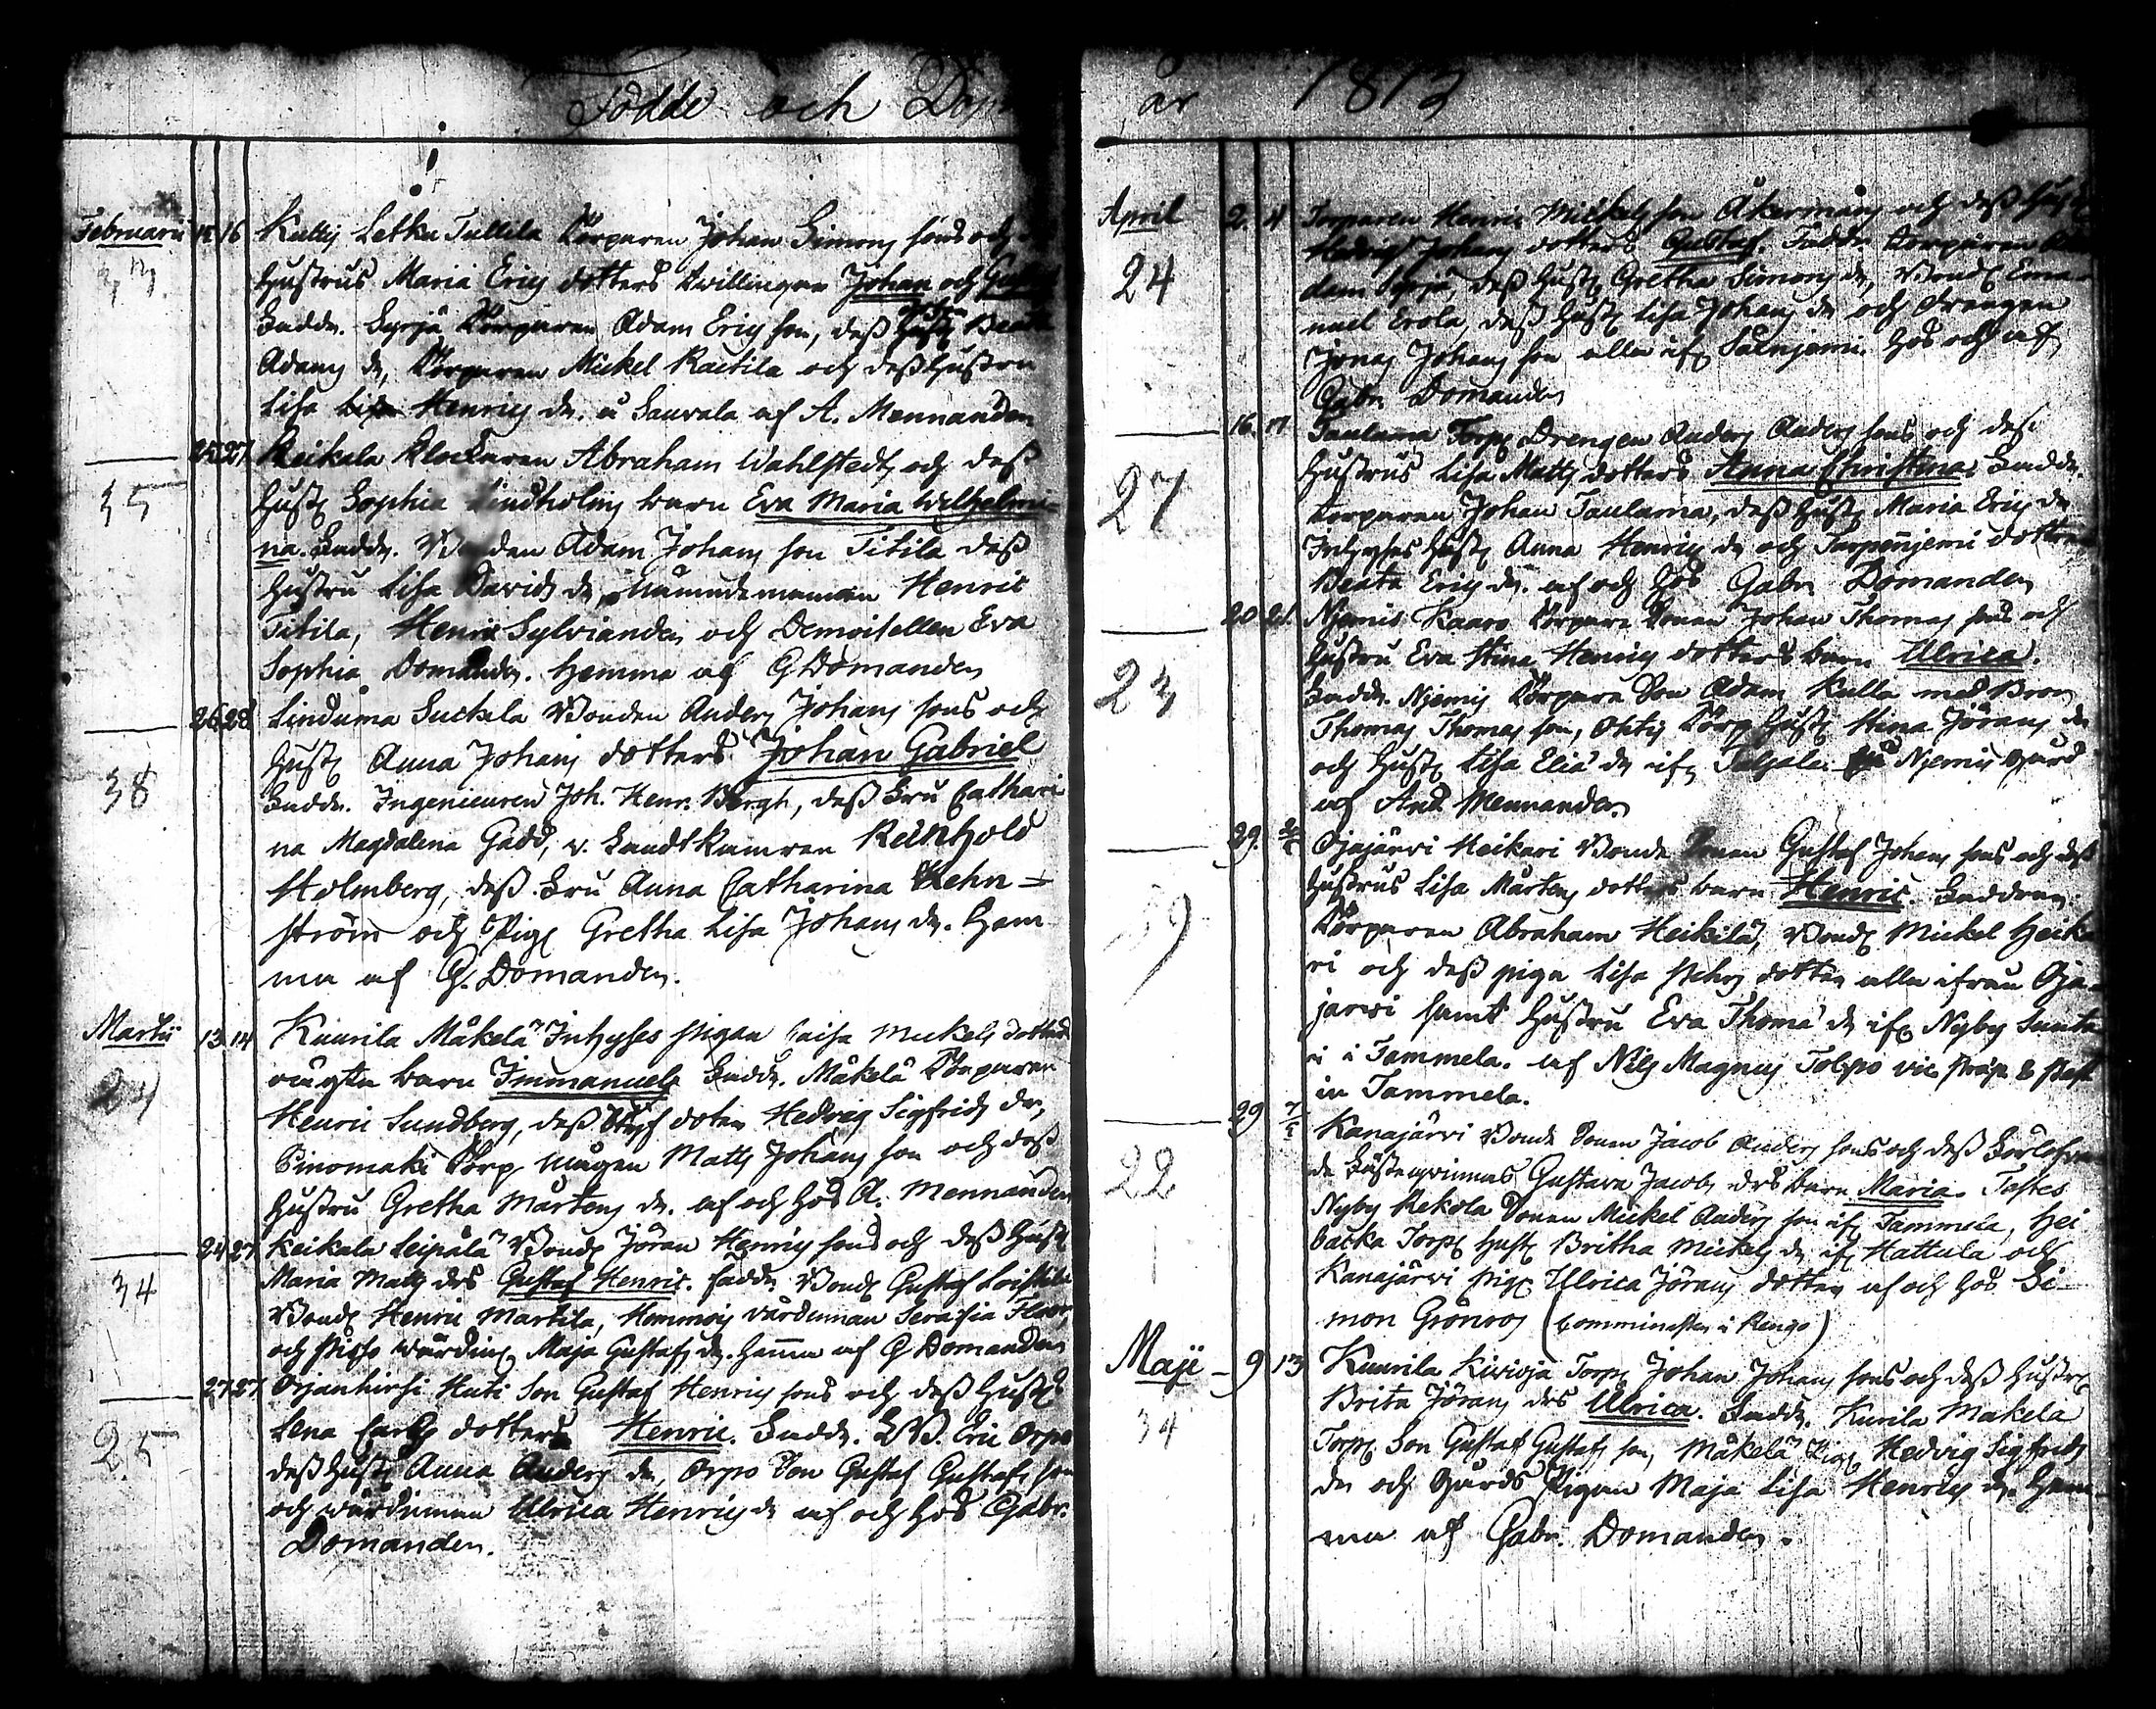 Födde och Döp
Februarii 15 16 Kuttis Letku Tullila Torparen Johan Simons sons och
Hustrus Maria Erics dotters twillingar Johan och Gustaf
Faddr. Syrjä Torparen Adam Ericsson, dess Hust. Beata
Adams dr, Torparen Mickel Raitila och dess Hustru
Lisa Henrics dr. å Sauvala af A. Mennander
35 25 27 Keikala Klockaren Abraham Wahlstedts och dess
Hust. Sophia Lindholms barn Eva Maria Wilhelmi-
na. Faddr. Bonden Adam Johans son Titila dess
Hustru Lisa Davids dr, Nämndemannen Henric
Titila, Henric Sylvander och Demoisellen Eva
Sophia Domander. Hemma af G Domander
38 26 28 Lindama Suckela Bonden Anders Johans sons och
Hust. Anna Johans dotters Johan Gabriel
Faddr. Ingenieuren Joh. Henr. Bergh, dess Fru Cathari
na Magdalena Gadd, v. Landtkamrer Reinhold
Holmberg, dess Fru Anna Catharina Rehn-
ström och Pig. Gretha Lisa Johans dr. Hem
ma af G. Domander.
Martii 13 14 Kuurila Mäkelä Inhyses pigan Caisa Mickels dotters
oägta barn Immanuel Faddr. Mäkelä Torparen
Henric Sundberg, dess Styf doter Hedvig Sigfrids dr,
Pinomäki Torp mågen Matts Johans son och dess
Hustru Gretha Mårtens dr. af och hos A. Mennander
34 24 27 Keikala Leipälä Bond. Jöran Henrics sons och dess Hust.
Maria Matts drs Gustaf Henric. Faddr. Bond. Gustaf Loistila
Bond. Henric Martila, Hommois värdinnan Serafia Floor,
och Pispo wärdin. Maja Gustafs dr. Hemma af G Domander
25 27 27 Orjanhirsi Huti Son Gustaf Henrics sons och dess Hust.
Lena Carls dotters Henric. Faddr. Eric Orpo
dess Hust. Anna Anders dr, Orpo Son Gustaf Gustafs son
och wärdinnan Ulrica Henrics dr af och hos Gabr.
Domander.
år 1812
April 2. 4 Torparen Henric Mickels son Åkermans och dess Hustrus
24 Hedvig Johans dotters Gustaf. Faddr. Torparen
dam Syrjä, dess Hust. Gretha Simons dr, Bond. Ema-
nuel Erola, dess Hust. Lisa Johans dr och drengen
Jonas Johans son alla if. Saenjemi. Hos och af
Gabr. Domander
27 16. 17 Taulama Torp. Drengen Anders Anders sons och dess
Hustrus Lisa Matts dotters Anna Christina. Faddr.
torparen Johan Taulama, dess Hust. Maria Erics dr
Inhyses Hust. Anna Henrics dr och Torpenjemi dottren
Beata Erics dr. af och hos Gabr. Domander
23 20 21. Njemis Kaaro Torpare Sonen Johan Thomas sons och
Hustru Eva Stina Henrics dotters barn Ulrica.
Faddr. Njemis Torpare Son Adam Kulla med Bror
Thomas Thomas son, Ohtis Torp Hust. Stina Jörans dr
och Hust. Lisa Eliæ dr if. Taljala. Njemis gård
af And. Mennander
29. Ojajärvi Heikari Bonde Sonen Gustaf Johans sons och dess
Hustrus Lisa Mårtens dotters barn Henric. Faddren
Torparen Abraham Heikilä, Bond. Mickel Heika
ri och dess piga Lisa Pehrs dotter alla ifrån Oja-
järvi samt Hustru Eva Thomæ dr if. Nyby Sunta
i Tammela. af Nils Magnus Tolpo vic. Præp. & Past
in Tammela.
22 29 Kanajärvi Bonde Sonen Jacob Anders sons och dess Förlofva
de Fästeqvinnas Gustava Jacobs drs barn Maria. Testes
Nyby Rekola Sonen Mickel Anders son if. Tammela, Hei
backa Torp. Hust. Britha Mickels dr if. Hattula och
Kanajärvi pig. Ulrica Jörans dotter af och hos Si-
mon Grönros (Comminister i Rengo)
Maji 9 13 Kuurila Kirioja Torp. Johan Johans sons och dess Hustrus
34 Brita Jörans drs Ulrica. Faddr. Kurila Makela
Torp. Son Gustaf Gustafs son, Mäkelä Pig. Hedvig Sigfrids
dr och Gårds Pigan Maja Lisa Henrics dr. Hem-
ma af Gabr. Domander.